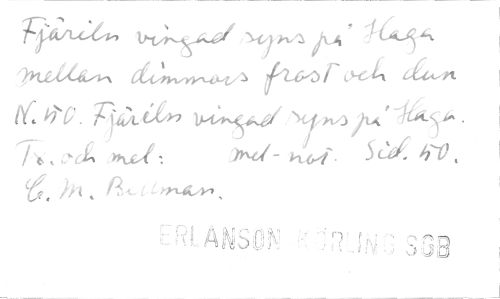 Fjäriln vingad syns på Haga
mellan dimmors frost och dun
N. 50. Fjäriln vingad syns på Haga.
Tx. och mel: mel-not. Sid. 50.
C. M. Bellman.
ERLANSON KÖRLING SGB